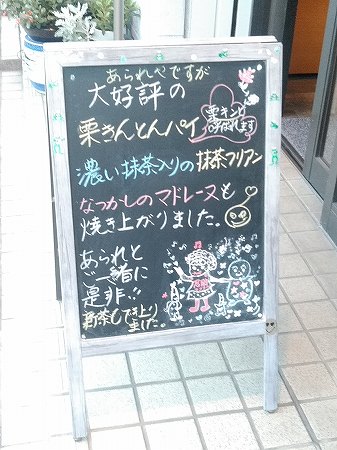 あられやですが
大好評の
栗きんとんパイ
栗キント
呼ばれます
濃い抹茶入りの抹茶フリアン
なつかしのマドレーヌも
焼き上がりました。
あられと
ご一緒に
是非!!
新茶もでき上り
ました